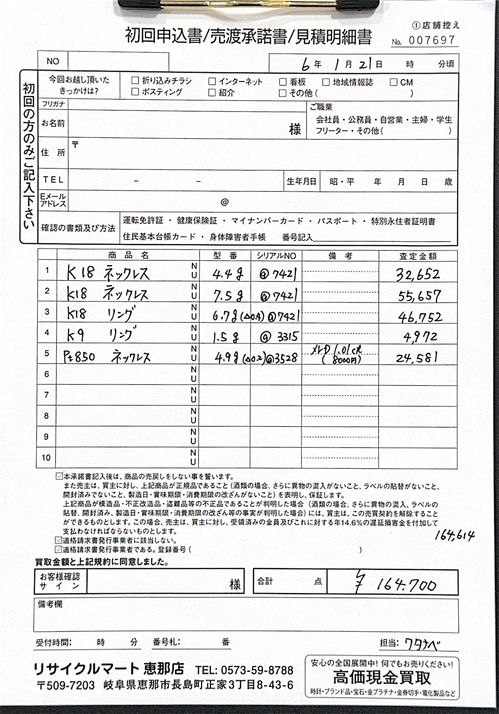 ①店舗控え
初回申込書/売渡承諾書/見積明細書 No. 007697
NO 6年 1月 21日 時 分頃
初回の方のみご記入下さい
今回お越し頂いたきっかけは? □折り込みチラシ □インターネット □看板 □地域情報誌 □CM
□ポスティング □紹介 □その他( )
フリガナ ご職業
お名前 様 会社員・公務員・自営業・主婦・学生
フリーター・その他( )
住所 〒
TEL - - 生年月日 昭・平 年 月 日 歳
Eメールアドレス @
確認の書類及び方法 運転免許証・健康保険証・マイナンバーカード・パスポート・特別永住者証明書
住民基本台帳カード・身体障害者手帳 番号記入
商品名 型番 シリアルNO 備考 査定金額
1 K18 ネックレス N U 4.4g @7421 32,652
2 K18 ネックレス N U 7.5g @7421 55,657
3 K18 リング N U 6.7g(△0.4) @7421 46,752
4 K9 リング N U 1.5g @ 3315 4,972
5 Pt850 ネックレス N U 4.9g(△0.2) @3528 メレD 1.01ct (8000円) 24,581
6 N U
7 N U
8 N U
9 N U
10 N U
☑本承諾書記入後は、商品の売戻しをしない事を誓います。
また売主は、買主に対し、上記商品が正規品であること(酒類の場合、さらに異物の混入がないこと、ラベルの貼替がないこと、
開封済みでないこと、製造日・賞味期限・消費期限の改ざんがないこと)を表明し、保証します。
上記商品が模造品・不正改造品・盗難品等の不正品であることが判明した場合(酒類の場合、さらに異物の混入、ラベルの
貼替、開封済み、製造日・賞味期限・消費期限の改ざん等の事実が判明した場合)には、買主は、この売買契約を解除すること
ができるものとします。この場合、売主は、買主に対し、受領済みの金員及びこれに対する年14.6%の遅延損害金を付加して
支払わなければならないものとします。
☑適格請求書発行事業者に該当しない。
☑適格請求書発行事業者である。登録番号( )
164,614
買取金額と上記規約に同意しました。
お客様確認サイン 様 合計 点 ¥ 164,700
備考欄
受付時間: 時 分 番号札: 番 担当: ワタナベ
リサイクルマート 恵那店 TEL: 0573-59-8788
〒509-7203 岐阜県恵那市長島町正家3丁目8-43-6
安心の全国展開中!何でもお売りください!
高価現金買取
時計・ブランド品・宝石・金プラチナ・金券切手・電化製品など